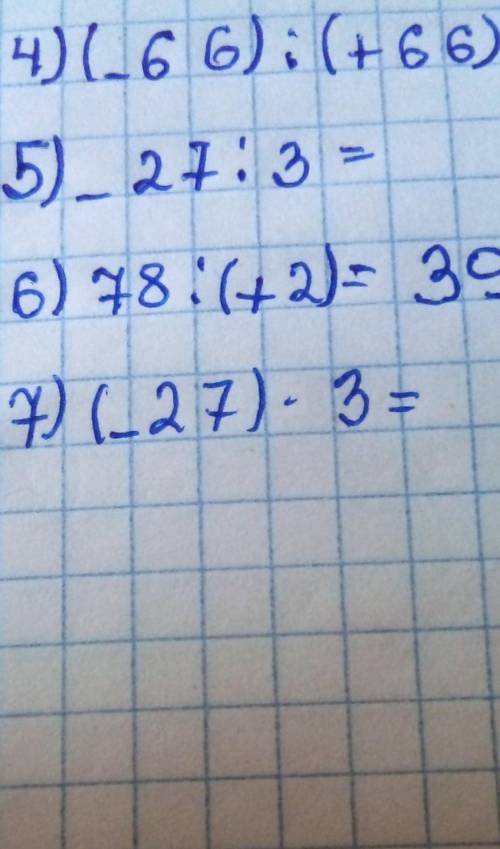 4) (-66) : (+66)
5) -27 : 3 =
6) 78 : (+2) = 39
7) (-27) · 3 =